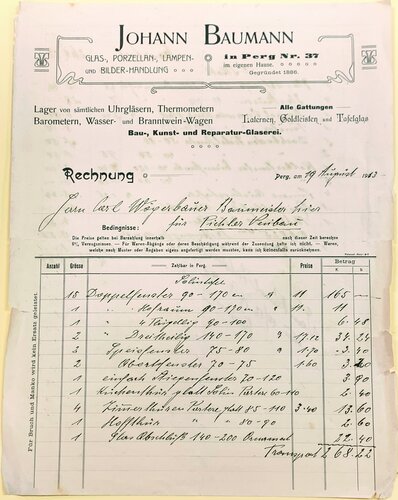 JOHANN BAUMANN
GLAS-, PORZELLAN-, LAMPEN-
UND BILDER-HANDLUNG
in Perg Nr. 37
im eigenen Hause.
Gegründet 1886.
Lager von sämtlichen Uhrgläsern, Thermometern
Barometern, Wasser- und Branntwein-Wagen
Alle Gattungen
Laternen, Goldleisten und Tafelglas
Bau-, Kunst- und Reparatur-Glaserei.
Rechnung
Perg, am 19 August 1913
Herrn Carl Baumeister hier
für Neubau
Bedingnisse:
Die Preise gelten bei Barzahlung innerhalb nach dieser Zeit berechne
Für Waren-Abgänge oder deren Beschädigung während der Zusendung hafte ich nicht. – Waren,
welche nach Muster oder Angaben eigens angefertigt werden mussten, kann ich keinesfalls zurücknehmen.
Anzahl Grösse Zahlbar in Perg Preise Betrag
K h
15 Doppelfenster 90-170 " 11 165 —
1 " Hofraum 90-170 " 11 —
1 " 90-100 6 48
2 " Dreiteilig 140-170 " 17.12 34 24
3 Speisfenster 75-80 " 1.70 3 40
2 70-75 1.60 3 20
1 einfach Stiegenfenster 70-120 3 90
1 glatt 60-110 2 40
4 glatt 85-110 3.40 13 60
1 Hofthür " " 80-90 2 40
1 Glas 140-200 Ornament 22 40
Transport 268 22
Für Bruch und Manko wird kein Ersatz geleistet.